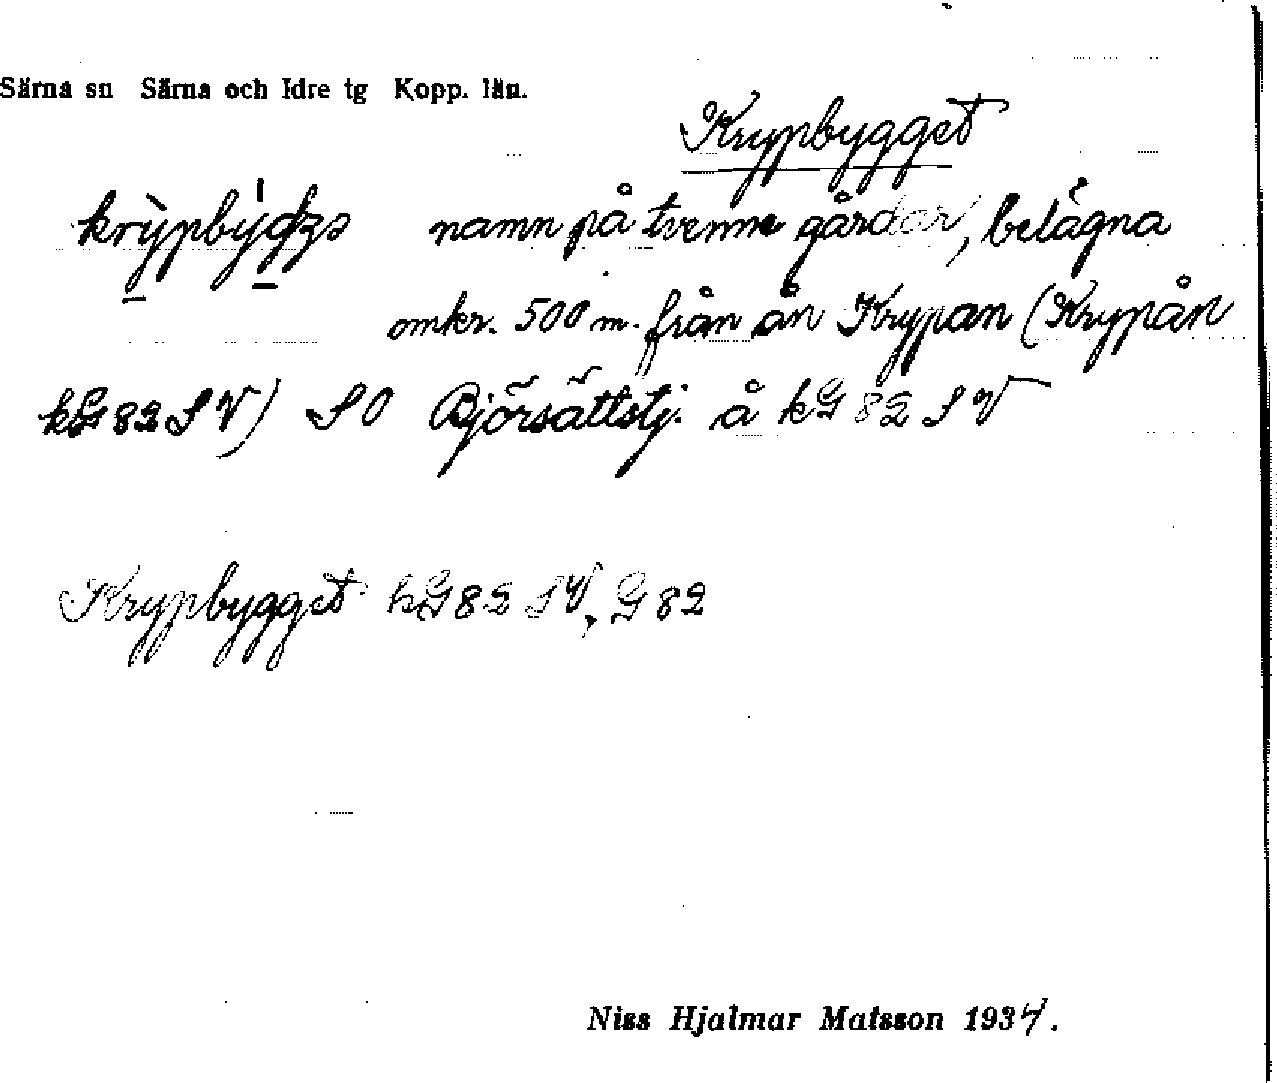 Särna sn Särna och Idre tg Kopp. län.
Krypbygget
namn på tvenne gårdar, belägna
omkr. 500 m. från ån Krypan (Krypån
kG82SV) SO Björsättstj. å kG82SV
Krypbygget kG82SV, G82
Niss Hjalmar Matsson 1934.